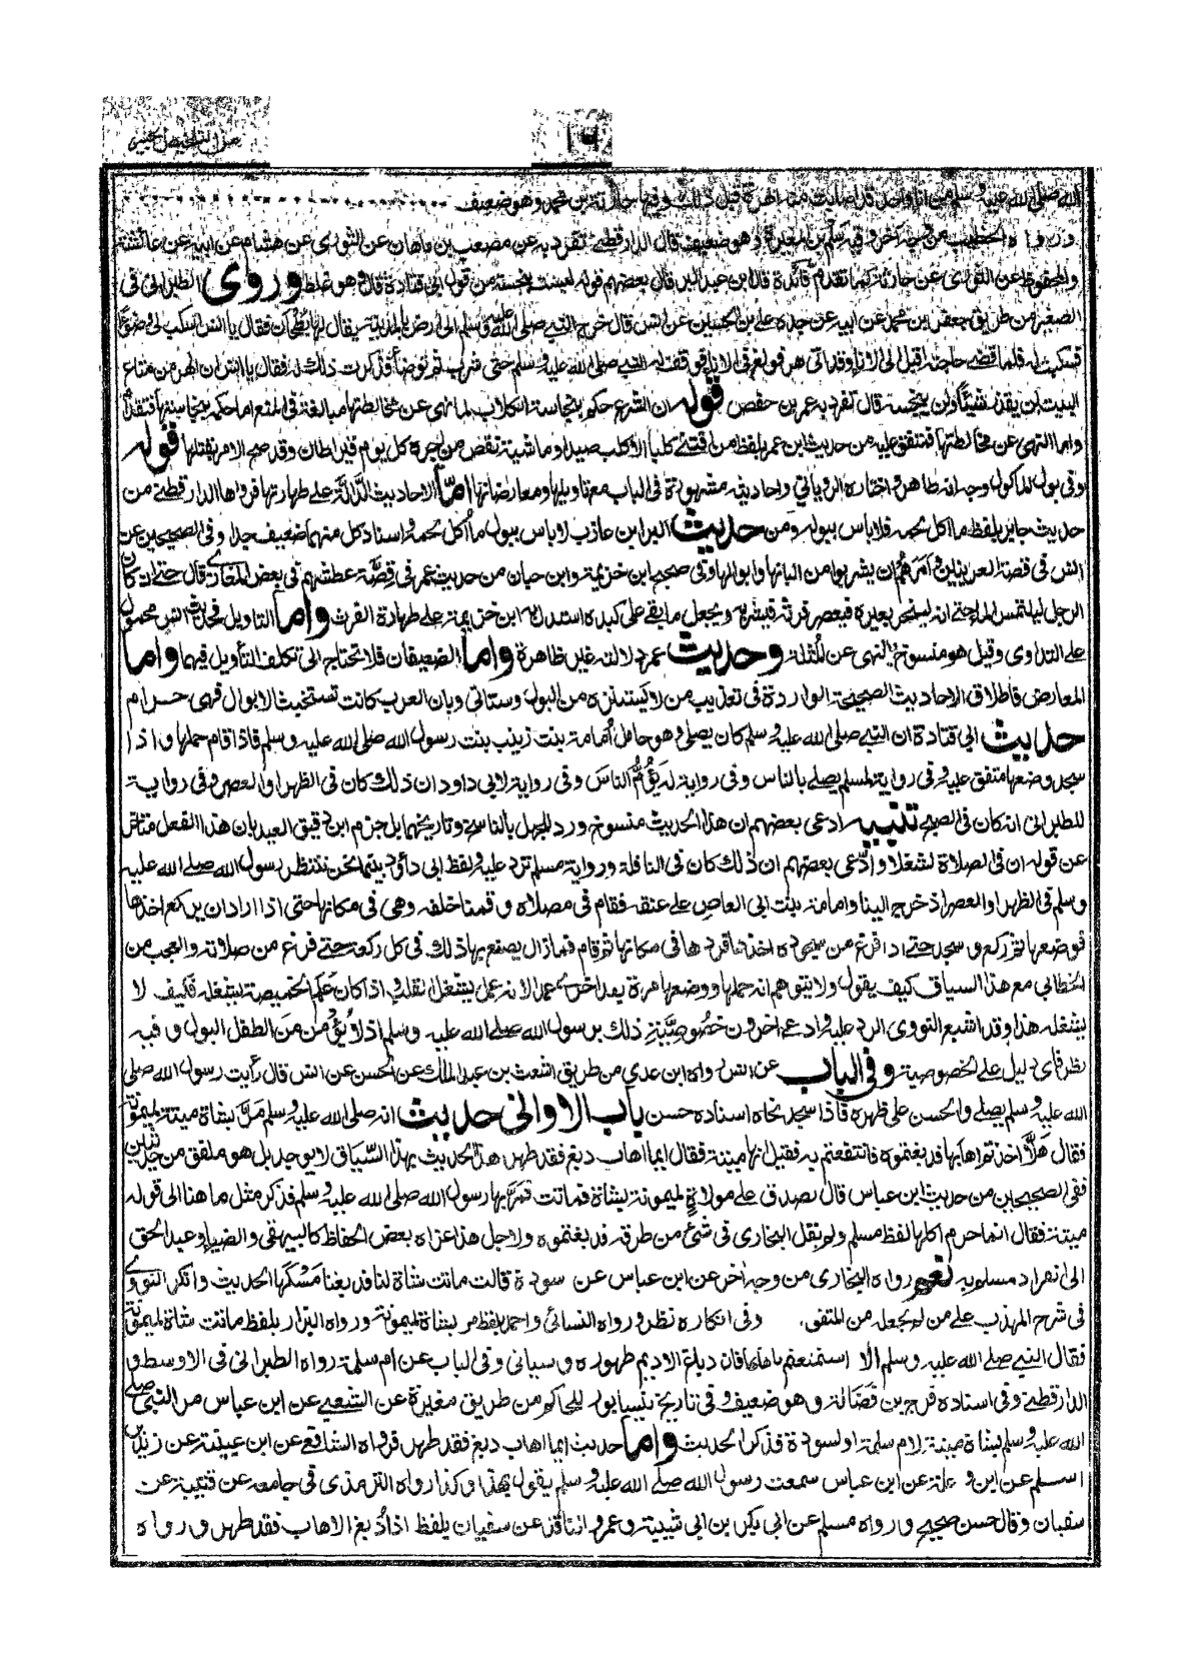 من التلخيص الحبير
الله صلى الله عليه وسلم من اناء واحد قد اصابت منه الهرة قبل ذلك وفيه حارثة بن محمد وهو ضعيف
ورواه الخطيب من وجه اخر وفيه سلم بن المغيرة وهو ضعيف قال الدارقطنى تفرد به عن مصعب بن ماهان عن الثورى عن هشام عن ابيه عن عائشة
والمحفوظ عن الثورى عن حارثة كما تقدم فائدة قال ابن عبد البر قال بعضهم قوله ليست بنجسة من قول ابى قتادة قال وهو غلط وروى الطبرانى فى
الصغير من طريق جعفر بن محمد عن ابيه عن جده على بن الحسين عن انس قال خرج النبى صلى الله عليه وسلم الى ارض بالمدينة يقال لها بطحان فقال يا انس اسكب لى وضوءا
فسكبت له فلما قضى حاجته اقبل الى الاناء وقد اتى هر فولغ فى الاناء فوقف له النبى صلى الله عليه وسلم حتى شرب ثم توضأ فذكرت ذلك له فقال يا انس ان الهر من متاع
البيت لن يقذر شيئا ولن ينجسه قال تفرد به عمر بن حفص قوله ان الشرع حكم بنجاسة الكلاب لما نهى عن مخالطتها مبالغة فى المنع اما حكمه بنجاستها فتقدم
واما النهى عن مخالطتها فمتفق عليه من حديث ابن عمر بلفظ من اقتنى كلبا الا كلب صيد او ماشية نقص من اجره كل يوم قيراطان وقد صح الامر بقتلها قوله
وفى بول الماكول وجه انه طاهر واختاره الرويانى واحاديثه مشهورة فى الباب مع تاويلها ومعارضاتها اما الاحاديث الدالة على طهارتها فرواها الدارقطنى من
حديث جابر بلفظ ما اكل لحمه فلا باس ببوله ومن حديث البراء بن عازب لا باس ببول ما اكل لحمه واسناد كل منهما ضعيف جدا وفى الصحيحين عن
انس فى قصة العرنيين وامرهم ان يشربوا من البانها وابوالها وفى صحيح ابن خزيمة وابن حبان من حديث عمر فى قصة عطشهم فى بعض المغازى قال حتى ان كان
الرجل ليلتمس الماء حتى انه لينحر بعيره فيعصر فرثه فيشربه ويجعل ما بقى على كبده استدل به ابن خزيمة على طهارة الفرث واما التاويل فحديث انس محمول
على التداوى وقيل هو منسوخ بالنهى عن المثلة وحديث عمر دلالته غير ظاهرة واما الضعيفان فلا تحتاج الى تكلف التأويل فيهما واما
المعارض فاطلاق الاحاديث الصحيحة الواردة فى تعذيب من لا يستنزه من البول وستاتى وبان العرب كانت تستخبث الابوال فهى حرام
حديث ابى قتادة ان النبى صلى الله عليه وسلم كان يصلى وهو حامل أمامة بنت زينب بنت رسول الله صلى الله عليه وسلم فاذا قام حملها واذا
سجد وضعها متفق عليه وفى رواية لمسلم يصلى بالناس وفى رواية له يؤم الناس وفى رواية لابى داود ان ذلك كان فى الظهر او العصر وفى رواية
للطبرانى انه كان فى الصبح تنبيه ادعى بعضهم ان هذا الحديث منسوخ ورد للجهل بالناسخ وتاريخهما بل جزم ابن دقيق العيد بان هذا الفعل متاخر
عن قوله ان فى الصلاة لشغلا وادّعى بعضهم ان ذلك كان فى النافلة ورواية مسلم ترد عليه ولفظ ابى داؤد بينما نحن ننتظر رسول الله صلى الله عليه
وسلم فى الظهر او العصر اذ خرج الينا وامامة بنت ابى العاص على عنقه فقام فى مصلاه وقمنا خلفه وهى فى مكانها حتى اذا اراد ان يركع اخذها
فوضعها ثم ركع وسجد حتى اذا فرغ من سجوده اخذها فردها فى مكانها ثم قام فما زال يصنع بها ذلك فى كل ركعة حتى فرغ من صلاته والعجب من
الخطابى مع هذا السياق كيف يقول ولا يتوهم انه حملها ووضعها مرة بعد اخرى عمدا لانه عمل يشغل القلب واذا كان علم الخميصة يشغله فكيف لا
يشغله هذا وقد اشبع النووى الرد عليه وادعى اخرون خصوصية ذلك برسول الله صلى الله عليه وسلم اذ لا يؤمن من الطفل البول وفيه
نظر فاى دليل على الخصوصية وفى الباب عن انس رواه ابن عدى من طريق اشعث بن عبد الملك عن الحسن عن انس قال رأيت رسول الله صلى
الله عليه وسلم يصلى والحسن على ظهره فاذا سجد نحاه اسناده حسن باب الاوانى حديث انه صلى الله عليه وسلم مر بشاة ميتة لميمونة
فقال هلّا اخذتم اهابها فدبغتموه فانتفعتم به فقيل انها ميتة فقال ايما اهاب دبغ فقد طهر هذا الحديث بهذا السّياق لا يوجد بل هو ملفق من حديثين
ففى الصحيحين من حديث ابن عباس قال تصدق على مولاة لميمونة بشاة فماتت فمر بها رسول الله صلى الله عليه وسلم فذكر مثل ما هنا الى قوله
ميتة فقال انما حرم اكلها لفظ مسلم ولم يقل البخارى فى شئ من طرقه فدبغتموه ولاجل هذا عزاه بعض الحفاظ كالبيهقى والضياء وعبد الحق
الى انفراد مسلم به نعم رواه البخارى من وجه اخر عن ابن عباس عن سودة قالت ماتت شاة لنا فدبغنا مسكها الحديث وانكر النووى
فى شرح المهذب على من لم يجعله من المتفق. وفى انكاره نظر ورواه النسائى واحمد بلفظ مر بشاة لميمونة ورواه البزار بلفظ ماتت شاة لميمونة
فقال النبى صلى الله عليه وسلم الا استمتعتم باهابها فان دباغ الاديم طهوره وسياتى وفى الباب عن ام سلمة رواه الطبرانى فى الاوسط و
الدارقطنى وفى اسناده فرج بن فضالة وهو ضعيف وفى تاريخ نيسابور للحاكم من طريق مغيرة عن الشعبى عن ابن عباس مر النبى صلى
الله عليه وسلم بشاة ميتة لام سلمة او لسودة فذكر الحديث واما حديث ايما اهاب دبغ فقد طهر فرواه الشافعى عن ابن عيينة عن زيد بن
اسلم عن ابن وعلة عن ابن عباس سمعت رسول الله صلى الله عليه وسلم يقول بهذا وكذا رواه الترمذى فى جامعه عن قتيبة عن
سفيان وقال حسن صحيح ورواه مسلم عن ابى بكر بن ابى شيبة وعمرو الناقد عن سفيان بلفظ اذا دبغ الاهاب فقد طهر ورواه